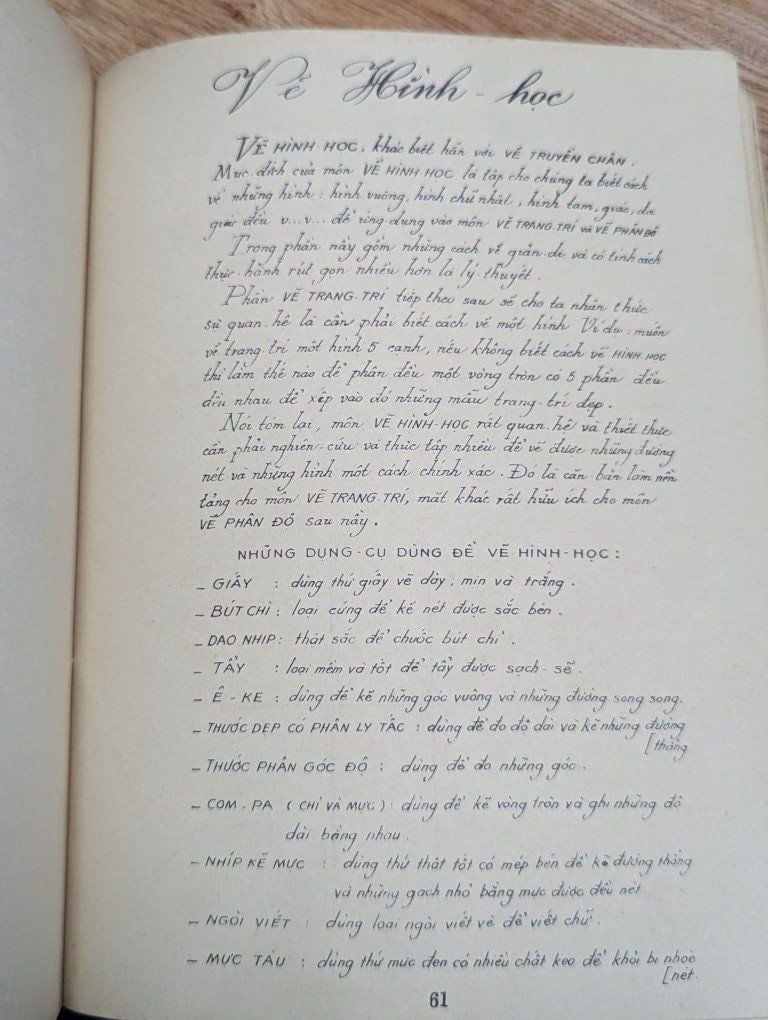 Vẽ Hình-học
VẼ HÌNH-HỌC, khác biệt hẳn với VẼ TRUYỀN CHÂN.
Mục đích của môn VẼ HÌNH HỌC là tập cho chúng ta biết cách
vẽ những hình: hình vuông, hình chữ nhật, hình tam-giác, đa
giác đều v...v... để ứng dụng vào môn VẼ TRANG-TRÍ và VẼ PHÂN ĐỘ
Trong phần nầy gồm những cách vẽ giản-dị và có tính cách
thực-hành rút gọn nhiều hơn là lý-thuyết.
Phần VẼ TRANG-TRÍ tiếp theo sau sẽ cho ta nhận thức
sự quan-hệ là cần phải biết cách vẽ một hình Ví dụ: muốn
vẽ trang-trí một hình 5 cạnh, nếu không biết cách VẼ HÌNH HỌC
thì làm thế nào để phân đều một vòng tròn có 5 phần đều
đều nhau để xếp vào đó những mẫu trang-trí đẹp.
Nói tóm lại, môn VẼ HÌNH-HỌC rất quan-hệ và thiết thực
cần phải nghiên-cứu và thực tập nhiều để vẽ được những đường
nét và những hình một cách chính xác. Đó là căn bản làm nền
tảng cho môn VẼ TRANG-TRÍ, mặt khác rất hữu ích cho môn
VẼ PHÂN ĐỘ sau nầy.
NHỮNG DỤNG-CỤ DÙNG ĐỂ VẼ HÌNH-HỌC:
- GIẤY : dùng thứ giấy vẽ dày, mịn và trắng.
- BÚT CHÌ : loại cứng để kẻ nét được sắc bén.
- DAO NHÍP: thật sắc để chuốc bút chì.
- TẨY : loại mềm và tốt để tẩy được sạch-sẽ.
- Ê-KE : dùng để kẽ những góc vuông và những đường song song.
- THƯỚC DẸP CÓ PHÂN LY TẤC : dùng để đo độ dài và kẽ những đường
[thẳng
- THƯỚC PHÂN GÓC ĐỘ : dùng để đo những góc.
- COM-PA ( CHÌ VÀ MỰC ) : dùng để kẽ vòng tròn và ghi những độ
dài bằng nhau.
- NHÍP KẼ MỰC : dùng thứ thật tốt có mép bén để kẽ đường thẳng
và những gạch nhỏ bằng mực được đều nét.
- NGÒI VIẾT : dùng loại ngòi viết vẽ để viết chữ.
- MỰC TÀU : dùng thứ mực đen có nhiều chất keo để khỏi bị nhoè
[nét.
61